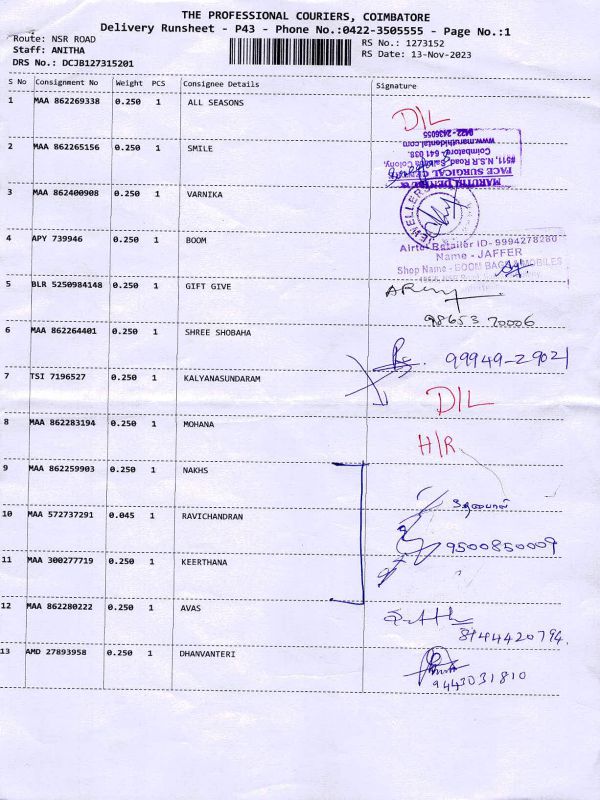 THE PROFESSIONAL COURIERS, COIMBATORE
Delivery Runsheet - P43 - Phone No.:0422-3505555 - Page No.:1
Route: NSR ROAD
Staff: ANITHA
DRS No.: DCJB127315201
RS No.: 1273152
RS Date: 13-Nov-2023
S No Consignment No Weight PCS Consignee Details Signature
1 MAA 862269338 0.250 1 ALL SEASONS
D/L
2 MAA 862265156 0.250 1 SMILE
MARUTHI DENTAL &
FACE SURGICAL CENTRE
#511, N.S.R Road, Saibaba Colony,
Coimbatore - 641 038.
www.maruthidental.com
0422 - 2436055
3 MAA 862400908 0.250 1 VARNIKA
JEWELLERS
4 APY 739946 0.250 1 BOOM
Airtel Retailer ID- 9994278280
Name - JAFFER
Shop Name - BOOM BAGS & MOBILES
5 BLR 5250984148 0.250 1 GIFT GIVE
98653 70006
6 MAA 862264401 0.250 1 SHREE SHOBAHA
99949-29021
7 TSI 7196527 0.250 1 KALYANASUNDARAM
D/L
8 MAA 862283194 0.250 1 MOHANA
H/R
9 MAA 862259903 0.250 1 NAKHS
10 MAA 572737291 0.045 1 RAVICHANDRAN
9500850009
11 MAA 300277719 0.250 1 KEERTHANA
12 MAA 862280222 0.250 1 AVAS
8144420794.
13 AMD 27893958 0.250 1 DHANVANTERI
9443031810